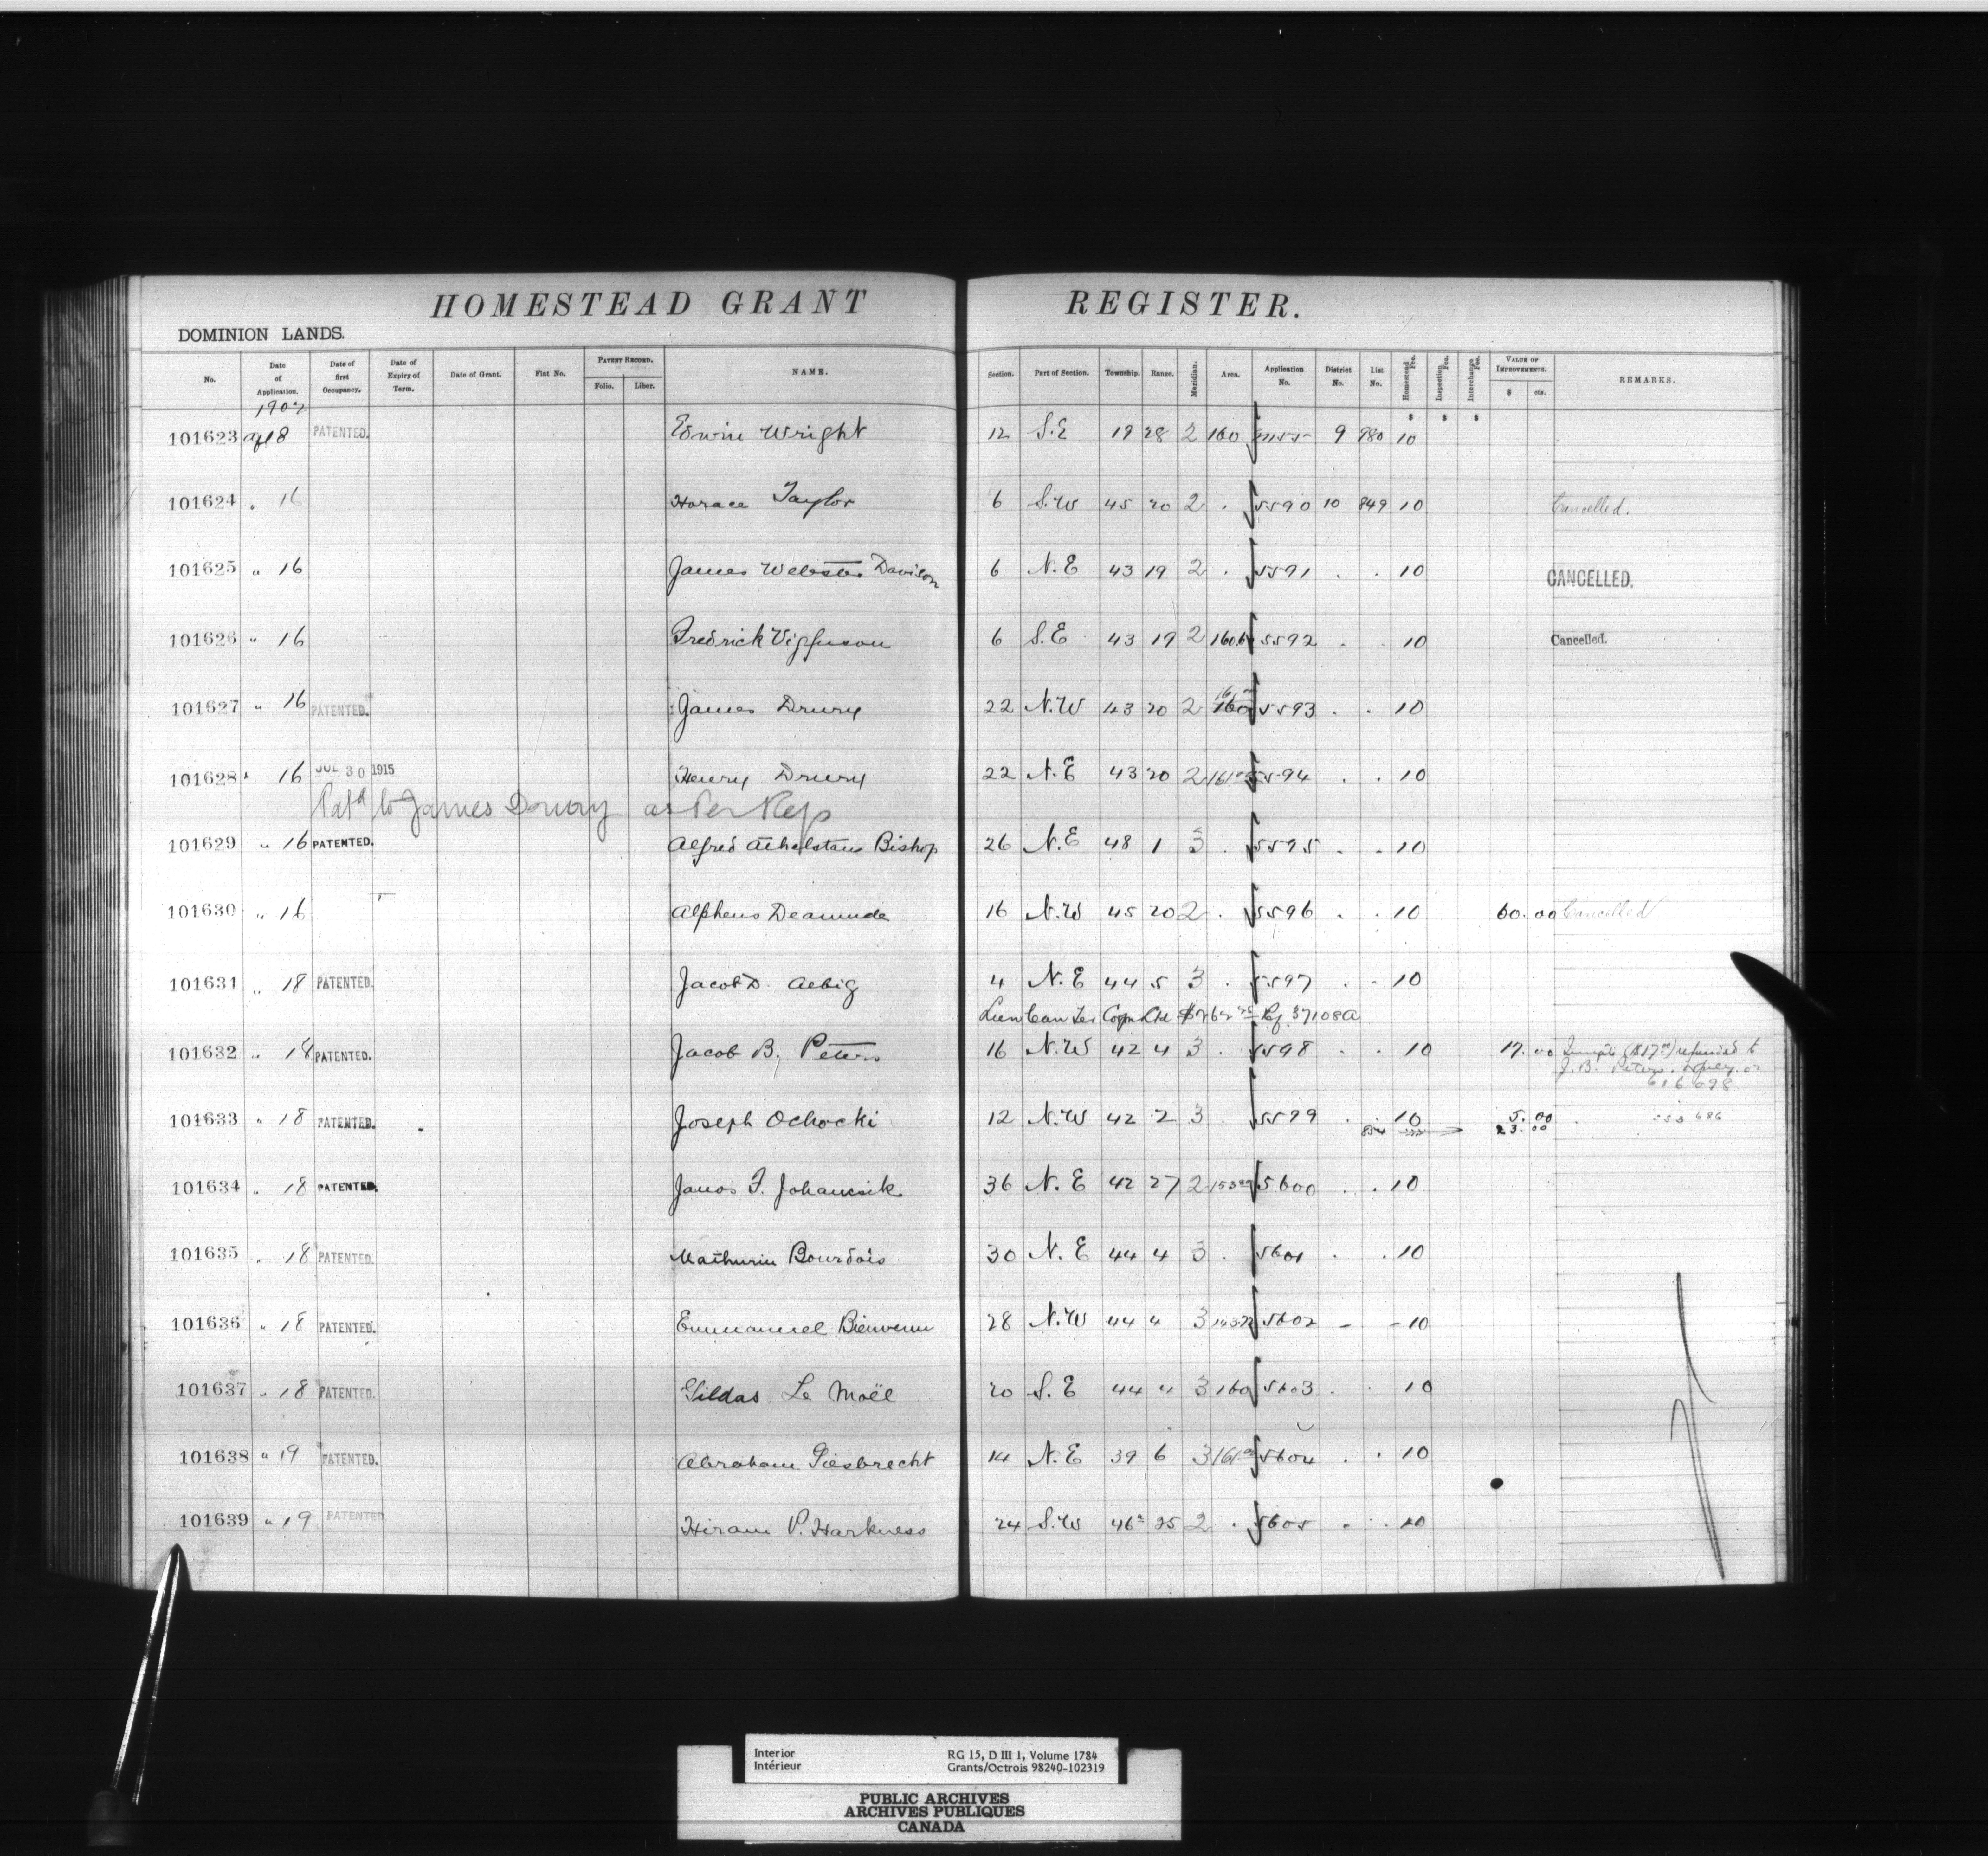 HOMESTEAD GRANT REGISTER.
DOMINION LANDS.
No. Date of Application. Date of first Occupancy. Date of Expiry of Term. Date of Grant. Fiat No. PATENT RECORD. Folio. Liber. NAME. Section. Part of Section. Township. Range. Meridian. Area. Application No. District No. List No. Homestead Fee. Inspection Fee. Interchange Fee. VALUE OF IMPROVEMENTS. $ cts. REMARKS.
$ $ $
101623 18 PATENTED. Edwin Wright 12 S.E 19 28 2 160 9 980 10
101624 " 16 Horace Taylor 6 S.W 45 20 2 . 5590 10 849 10 Cancelled.
101625 " 16 James Webster Davison 6 N.E 43 19 2 . 5591 . . 10 CANCELLED.
101626 " 16 Fredrick Vigfuson 6 S.E 43 19 2 5592 . . 10 Cancelled.
101627 " 16 PATENTED. James Drury 22 N.W 43 20 2 160 5593 . . 10
101628 " 16 JUL 30 1915 Henry Drury 22 N.E 43 20 2 161 5594 . . 10
Patd to James Drury as Per Rep
101629 " 16 PATENTED. Alfred Athelstane Bishop 26 N.E 48 1 3 . 5595 . . 10
101630 " 16 Alpheus Deamude 16 N.W 45 20 2 . 5596 . . 10 60.00 Cancelled
101631 " 18 PATENTED. Jacob D. Aebig 4 N.E 44 5 3 . 5597 . . 10
Lien Can Ter Corpn Ltd Rf. 37108A
101632 " 18 PATENTED. Jacob B. Peters 16 N.W 42 4 3 . 5598 . . 10 17.00 Impts ($17.00) refunded to
J. B. Peters.
616098
101633 " 18 PATENTED. Joseph Ochocki 12 N.W 42 2 3 . 5599 . . 10 5.00
854 23.00
101634 " 18 PATENTED. Janos F. Johancsik 36 N.E 42 27 2 5600 . . 10
101635 " 18 PATENTED. Mathurin Bourdois 30 N.E 44 4 3 . 5601 . . 10
101636 " 18 PATENTED. Emmanuel Bienvenu 28 N.W 44 4 3 5602 - - 10
101637 " 18 PATENTED. Gildas Le Moël 20 S.E 44 4 3 160 5603 . . 10
101638 " 19 PATENTED. Abraham Giesbrecht 14 N.E 39 6 3 161 5604 . . 10
101639 " 19 PATENTED. Hiram P. Harkness 24 S.W 46 25 2 . 5605 . . 10
Interior RG 15, D III 1, Volume 1784
Intérieur Grants/Octrois 98240-102319
PUBLIC ARCHIVES
ARCHIVES PUBLIQUES
CANADA